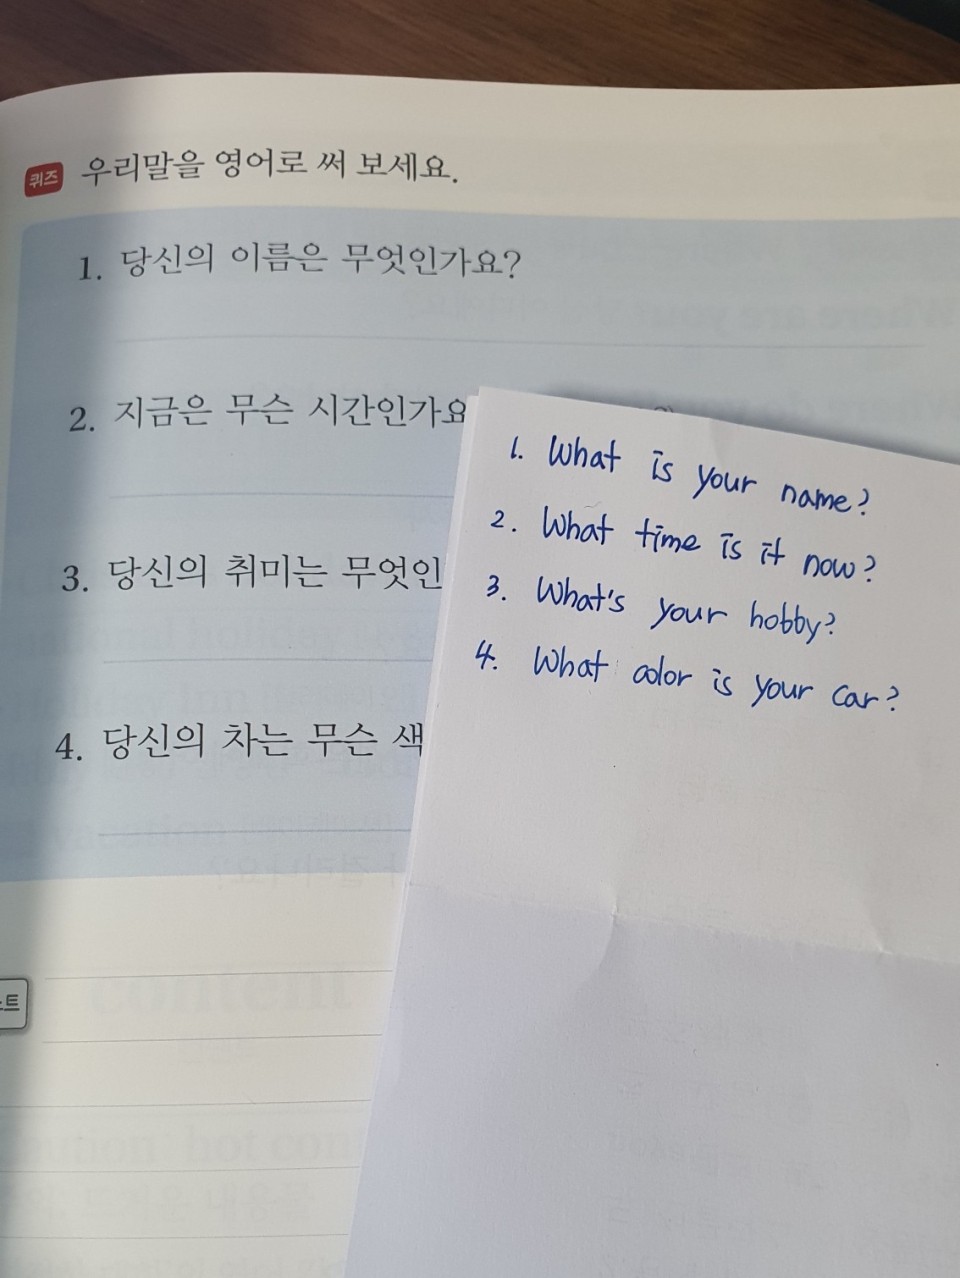 퀴즈 우리말을 영어로 써 보세요.
1. 당신의 이름은 무엇인가요?
2. 지금은 무슨 시간인가요
3. 당신의 취미는 무엇인
4. 당신의 차는 무슨 색
1. What is your name?
2. What time is it now?
3. What's your hobby?
4. What color is your car?
content